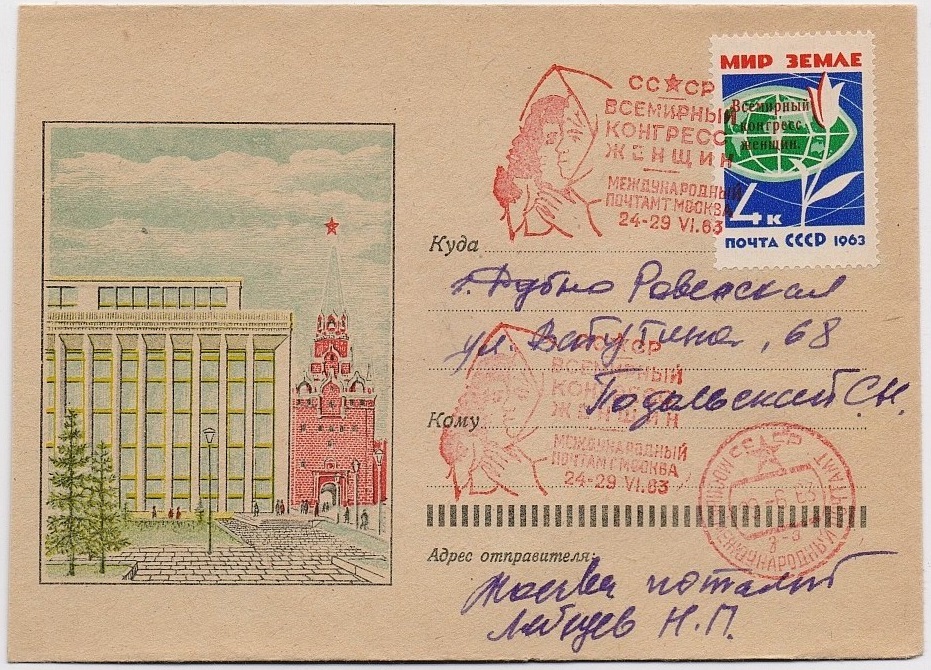 СССР
ВСЕМИРНЫЙ
КОНГРЕСС
ЖЕНЩИН
МЕЖДУНАРОДНЫЙ
ПОЧТАМТ МОСКВА
24-29 VI.63
МИР ЗЕМЛЕ
Всемирный
конгресс
женщин.
4к
ПОЧТА СССР 1963
Куда
г. Дубно Ровенская
ул. Ватутина, 68
Кому
Подольский С.Н.
СССР
ВСЕМИРНЫЙ
КОНГРЕСС
ЖЕНЩИН
МЕЖДУНАРОДНЫЙ
ПОЧТАМТ МОСКВА
24-29 VI.63
СССР
МЕЖДУНАРОДНЫЙ ПОЧТАМТ
Адрес отправителя:
Москва почтамт
Н.П.